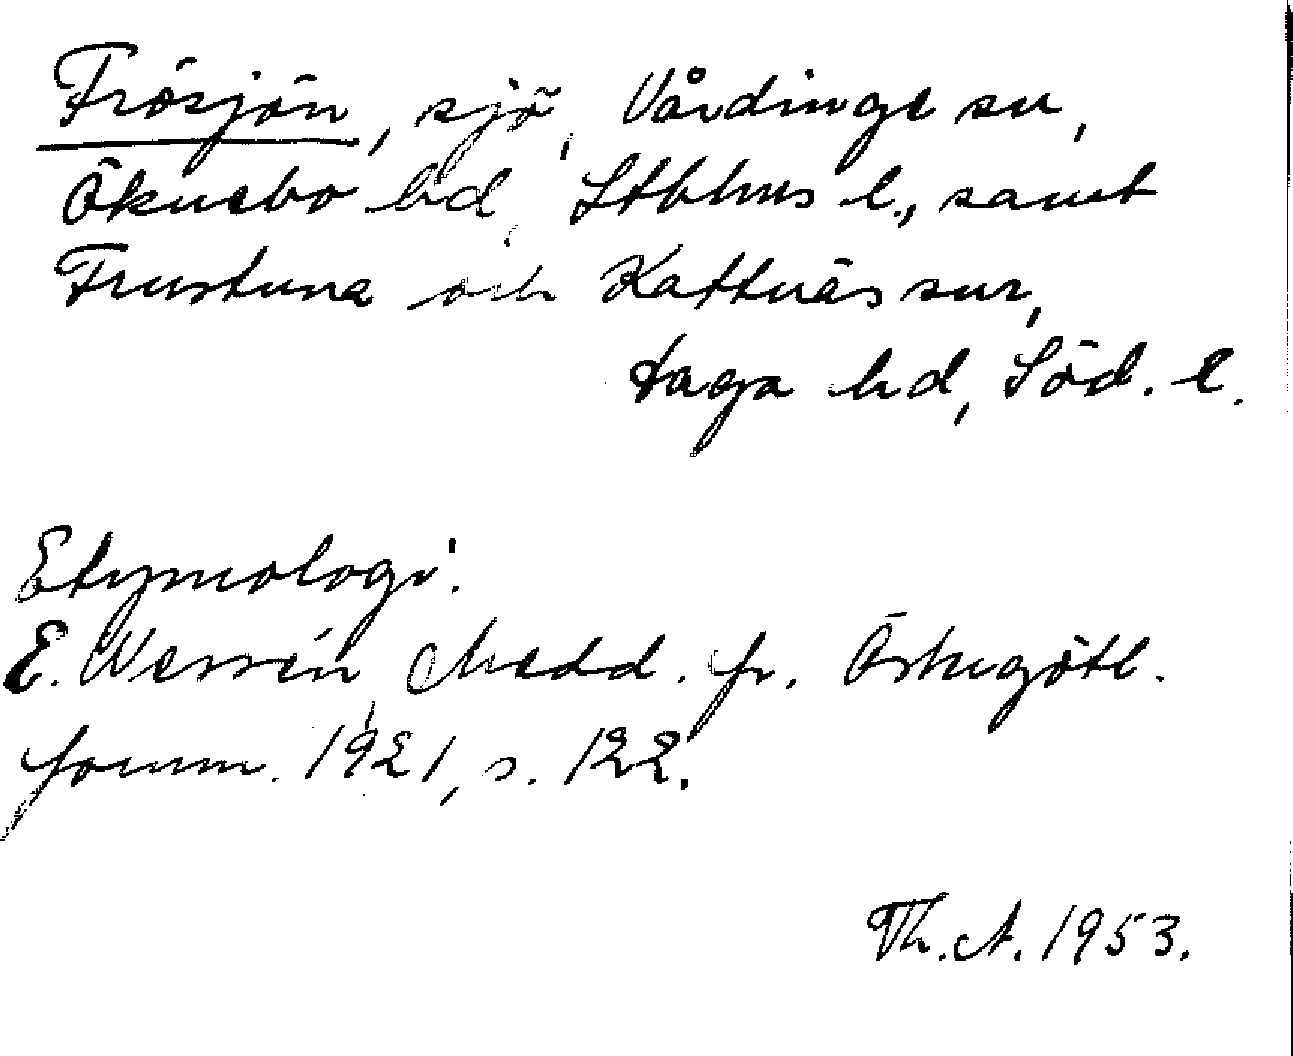 Frösjön, sjö, Vårdinge sn,
Öknebo hd, Stbhms l., samt
Frustuna och Kattnäs snr,
Daga hd, Söd. l.
Etymologi:
E. Wessén, Medd. fr. Östergötl.
fornm. 1921, s. 122.
Th. A. 1953.